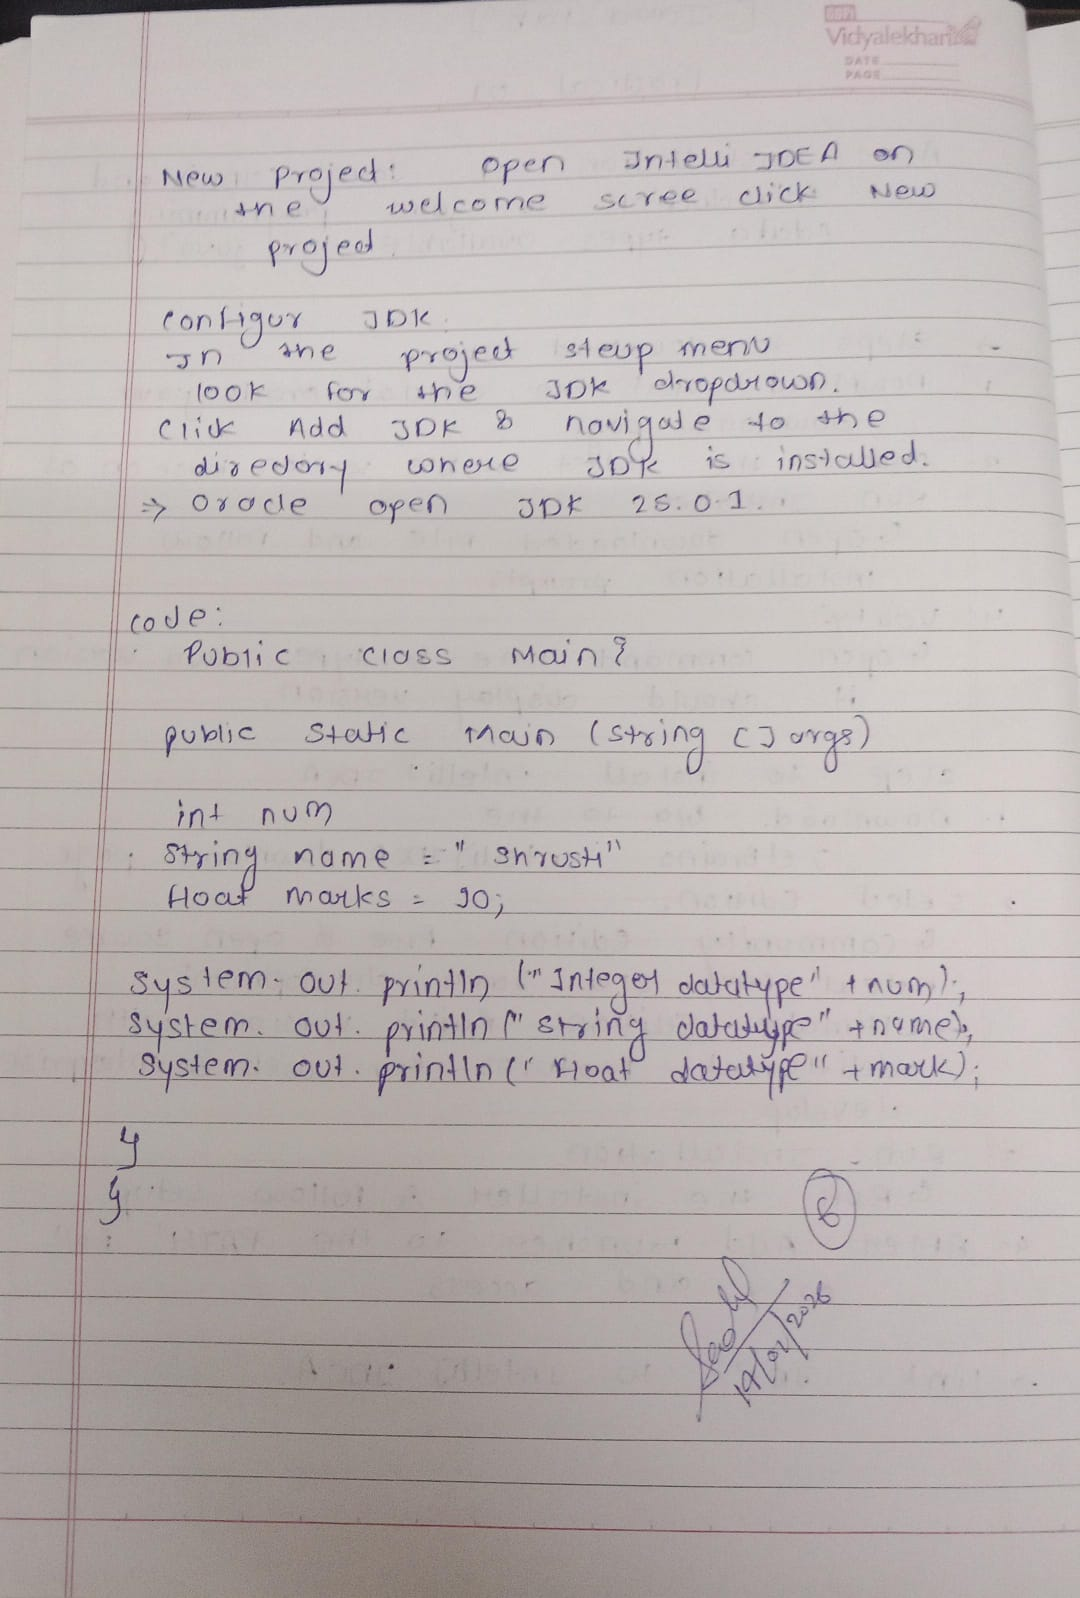 BBP
Vidyalekhan
DATE
PAGE
New project: open Intelli IDEA on
the welcome scree click New
project.
configur JDK.
In the project steup menu
look for the JDK dropdrown.
Click Add JDK & navigate to the
directory where JDK is installed.
⇒ Oracle open JDK 25.0.1.
code:
Public class Main {
public static main (string [] args)
int num
String name = "Shrusti"
float marks = 90;
System. out. println ("Integer datatype" + num);
System. out. println (" string datatype" + name);
System. out. println (" float datatype" + mark);
}
}
19/02/2026